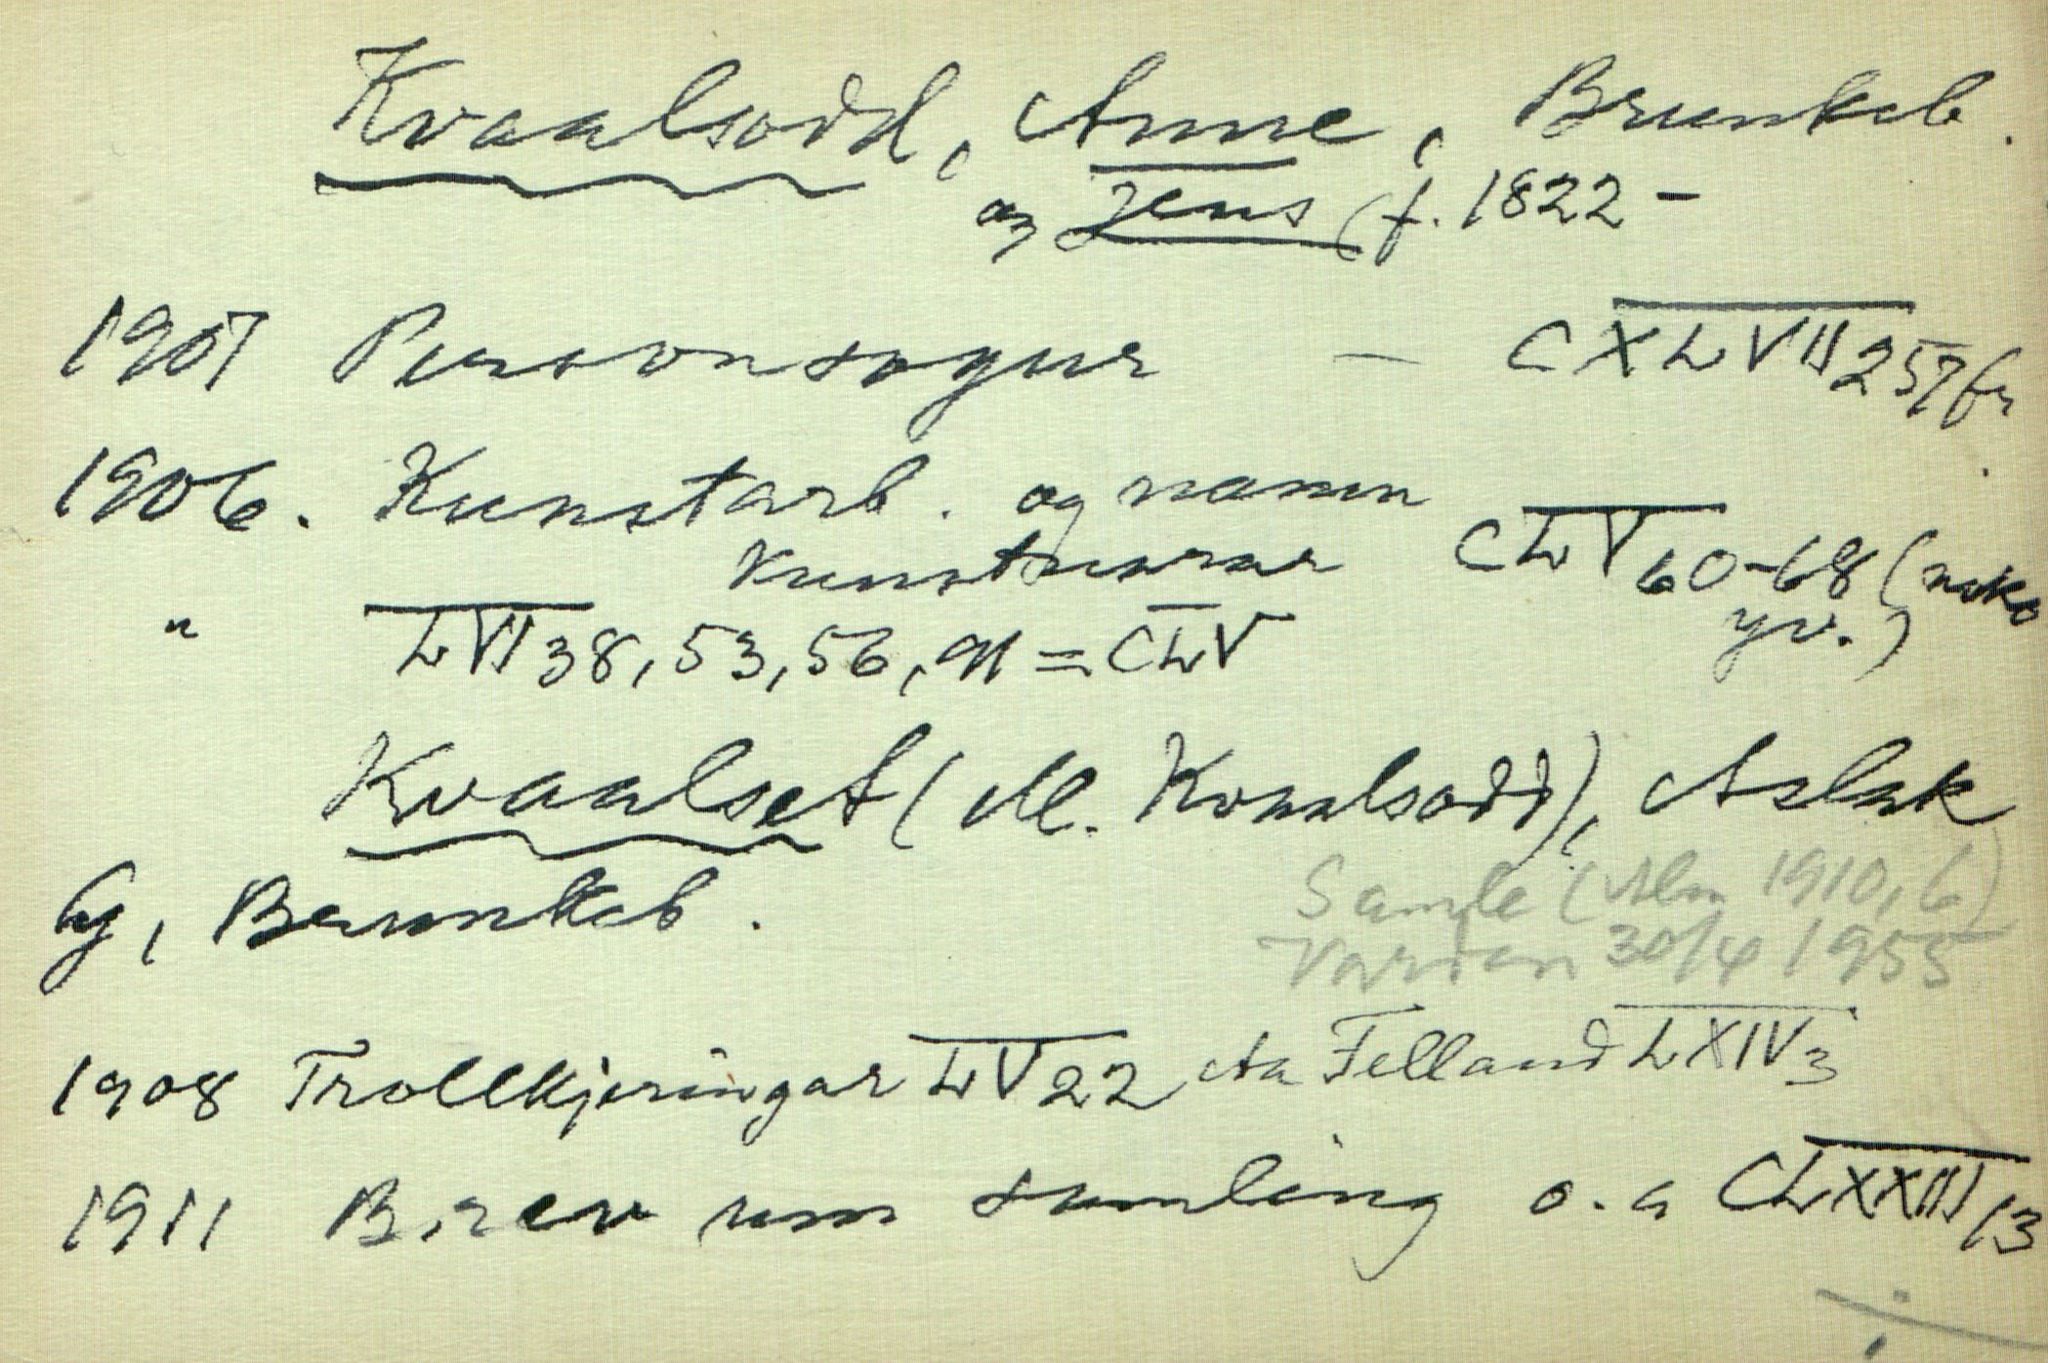 Kvaalsodd, Anne, Brunkeb.
og Jens (f. 1822 -
1907 Personsogur - CXLVII 257 fr
1906. Kunstarb. og namn
kunstnarar CLV 60-68 (noko
yv.)
" LVII 38, 53, 56, 91 = CLV
Kvaalset (el. Kvaalsodd), Aslak
G, Brunkeb.
Samle (Alm 1910, 6)
Varden 30/4 1955
1908 Trollkjeringar LV 22 Aa Felland LXIV 3
1911 Brev um samling o.a CLXXIII 13